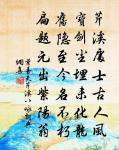 芹溪處士古人風
寶劍塵埋未化龍
舊隱至今名不朽
扁題元出紫陽翁